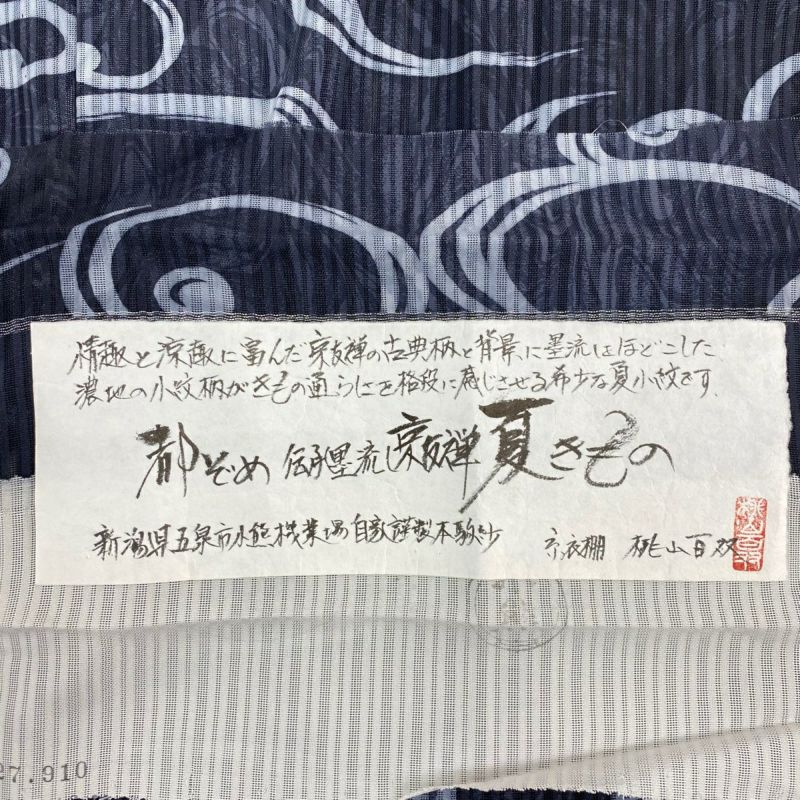 情趣と涼趣に富んだ京友禅の古典柄と背景に墨流しほどこした
濃地の小紋柄がきもの通らしさを格段に感じさせる希少な夏小紋です.
都ぞめ 伝承墨流し京友禅 夏きもの
新潟県五泉市 機業場 自敦謹製本駒紗 京衣棚 桃山百双
桃山百双
27.910